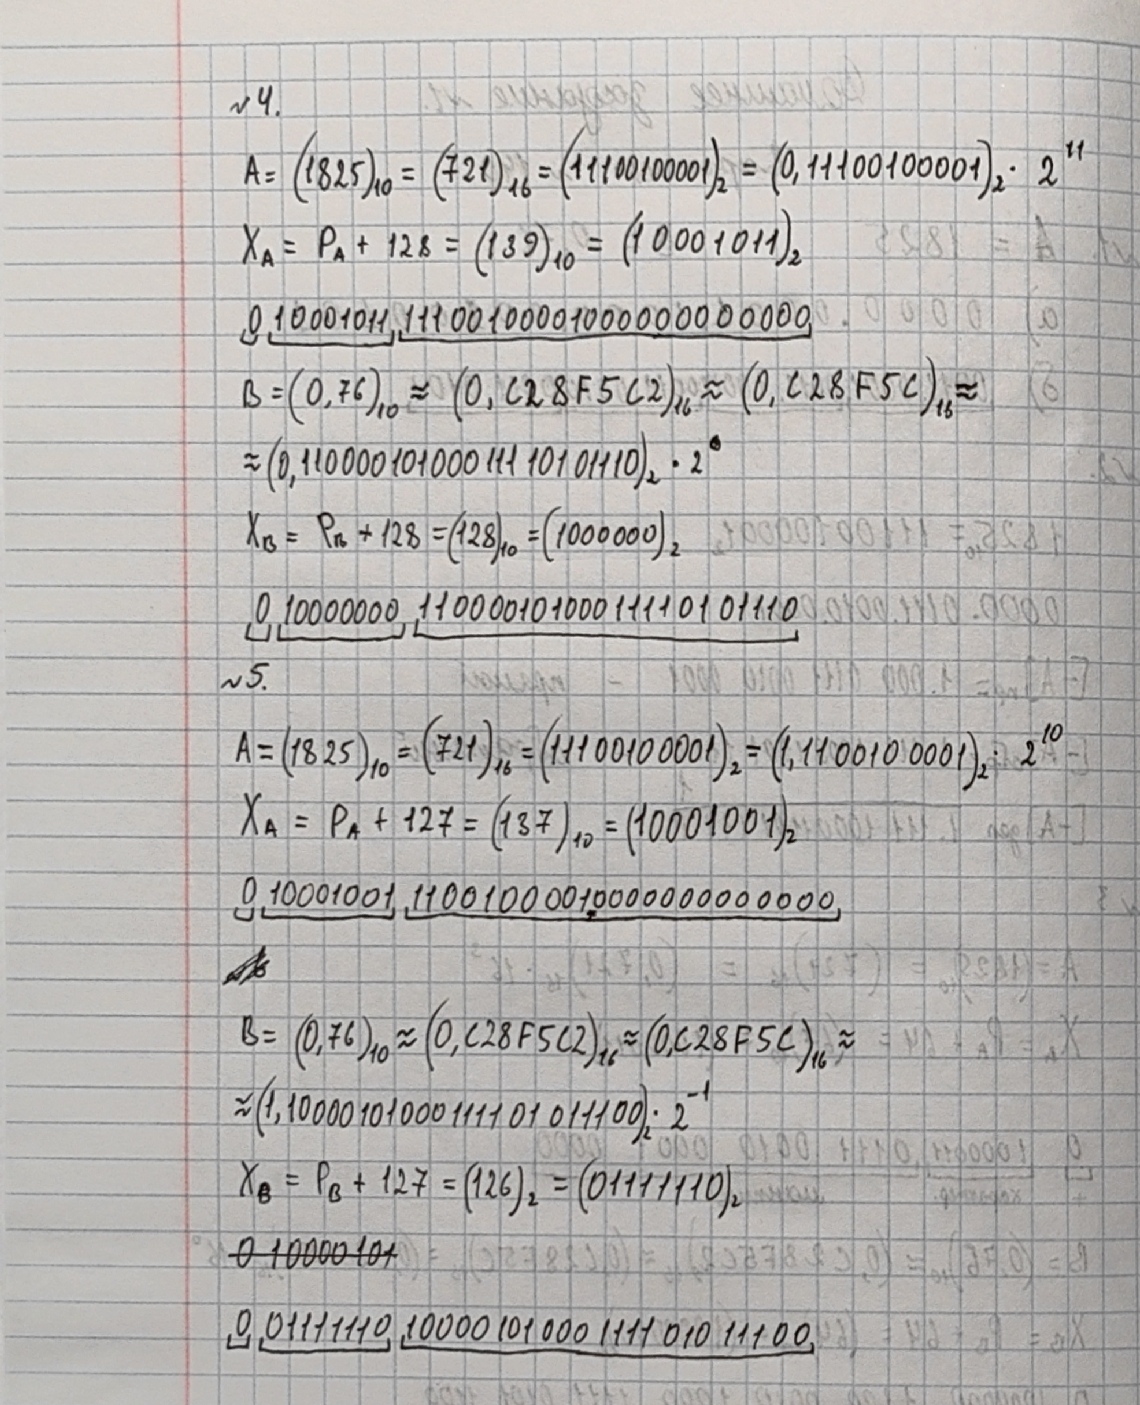 №4.
A = (1825)₁₀ = (721)₁₆ = (11100100001)₂ = (0,11100100001)₂ · 2¹¹
X_A = P_A + 128 = (139)₁₀ = (10001011)₂
0 10001011 111001000010000000000000
B = (0,76)₁₀ ≈ (0,C28F5C2)₁₆ ≈ (0,C28F5C)₁₆ ≈
≈ (0,11000010100011110101110)₂ · 2⁰
X_B = P_B + 128 = (128)₁₀ = (1000000)₂
0 10000000 11000010100011110101110
№5.
A = (1825)₁₀ = (721)₁₆ = (11100100001)₂ = (1,1100100001)₂ · 2¹⁰
X_A = P_A + 127 = (137)₁₀ = (10001001)₂
0 10001001 11001000010000000000000
B = (0,76)₁₀ ≈ (0,C28F5C2)₁₆ ≈ (0,C28F5C)₁₆ ≈
≈ (1,10000101000111101011100)₂ · 2⁻¹
X_B = P_B + 127 = (126)₂ = (01111110)₂
0 10000101
0 01111110 10000101000111101011100